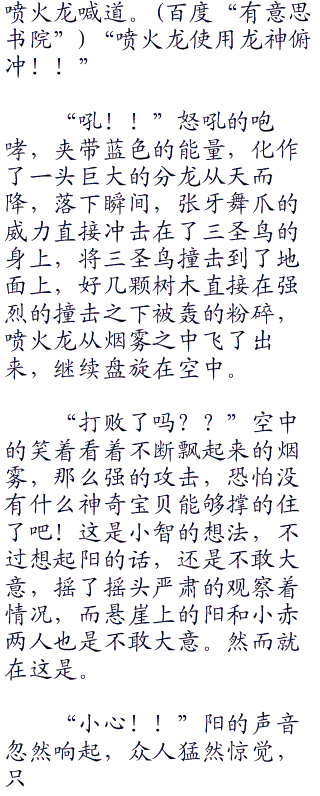 喷火龙喊道。(百度“有意思
书院”)“喷火龙使用龙神俯
冲！！”
“吼！！”怒吼的咆
哮，夹带蓝色的能量，化作
了一头巨大的分龙从天而
降，落下瞬间，张牙舞爪的
威力直接冲击在了三圣鸟的
身上，将三圣鸟撞击到了地
面上，好几颗树木直接在强
烈的撞击之下被轰的粉碎，
喷火龙从烟雾之中飞了出
来，继续盘旋在空中。
“打败了吗？？”空中
的笑着看着不断飘起来的烟
雾，那么强的攻击，恐怕没
有什么神奇宝贝能够撑的住
了吧！这是小智的想法，不
过想起阳的话，还是不敢大
意，摇了摇头严肃的观察着
情况，而悬崖上的阳和小赤
两人也是不敢大意。然而就
在这是。
“小心！！”阳的声音
忽然响起，众人猛然惊觉，
只